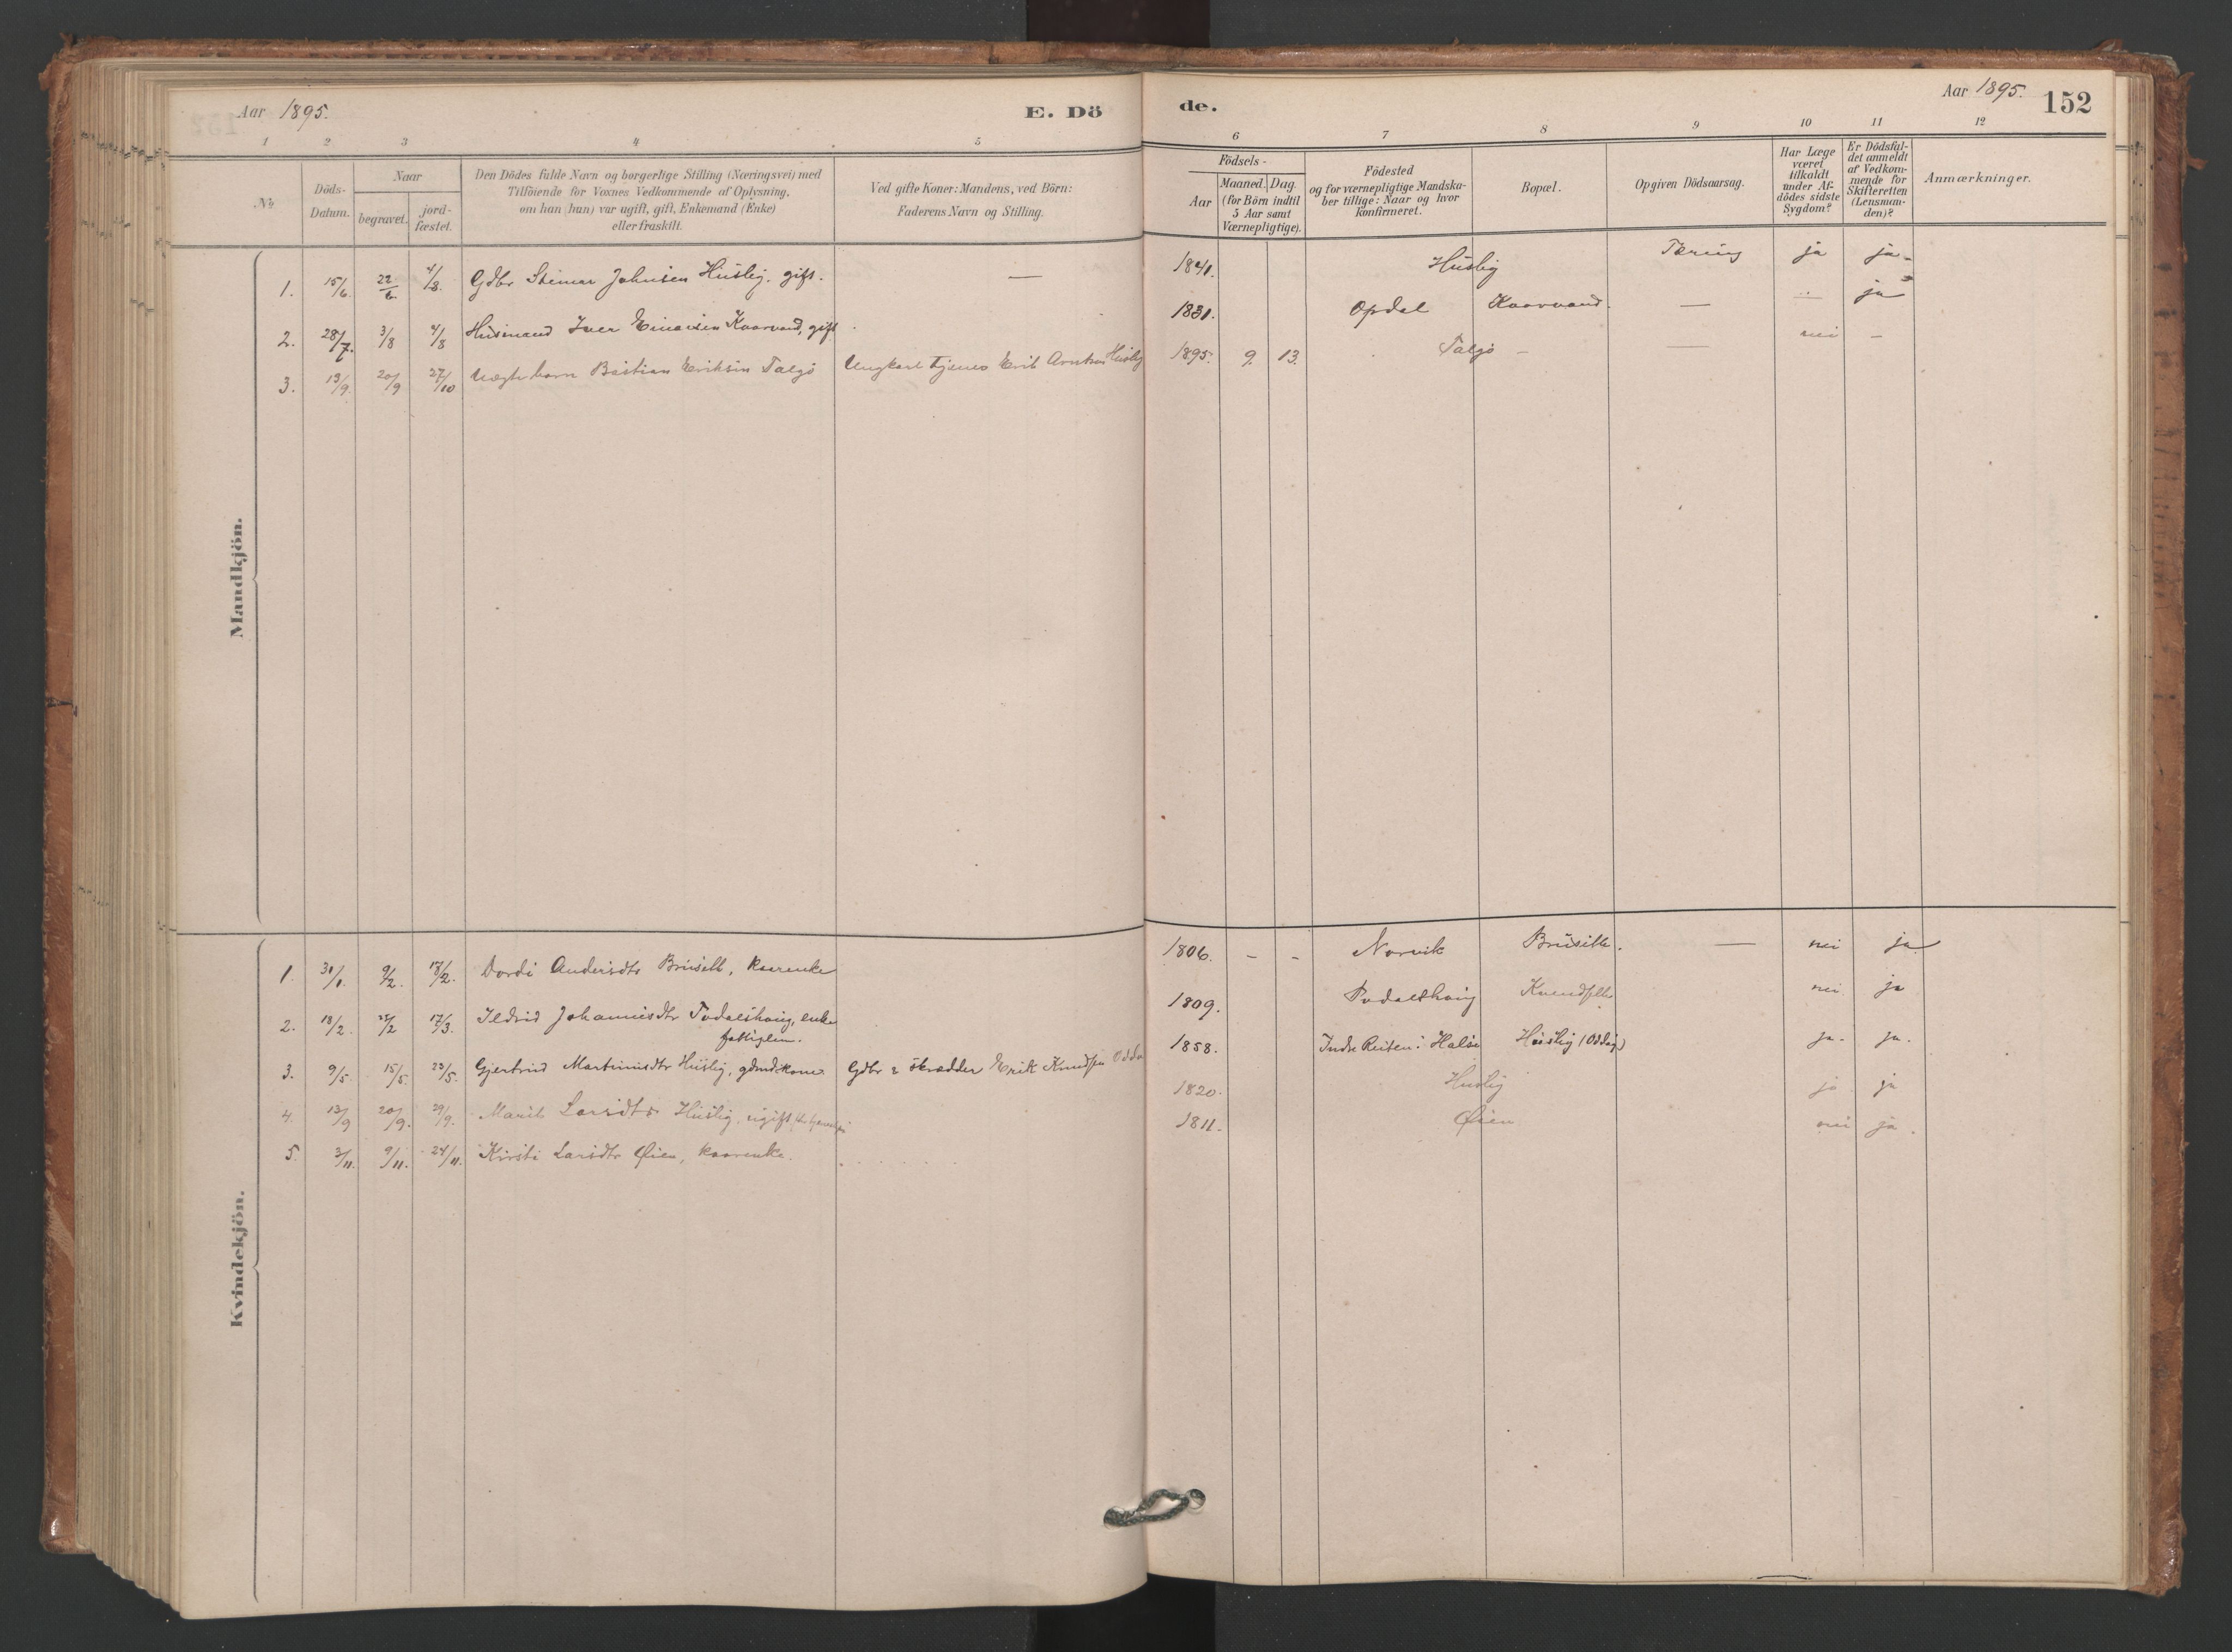 Aar 1895.
E. Dö
de.
Aar 1895.
152
1 2 3 4 5 6 7 8 9 10 11 12
No
Döds-
Datum.
Naar
begravet.
jord-
fæstet.
Den Dödes fulde Navn og borgerlige Stilling (Næringsvei) med
Tilföiende for Voxnes Vedkommende af Oplysning,
om han (hun) var ugift, gift, Enkemand (Enke)
eller fraskilt.
Ved gifte Koner: Mandens, ved Börn:
Faderens Navn og Stilling.
Födsels-
Aar
Maaned. Dag.
(for Börn indtil
5 Aar samt
Værnepligtige).
Födested
og for værnepligtige Mandska-
ber tillige: Naar og hvor
konfirmeret.
Bopæl.
Opgiven Dödsaarsag.
Har Læge
været
tilkaldt
under Af-
dödes sidste
Sygdom?
Er Dödsfal-
det anmeldt
af Vedkom-
mende for
Skifteretten
(Lensman-
den)?
Anmærkninger.
Mandkjön.
1. 15/6. 22/6. 4/8. Gdbr Steinar Johnsen Husby, gift. — 1841. Husby Tæring ja ja
2. 28/7. 3/8 4/8 Husmand Iver Einarsen Kaarvand, gift 1831. Opdal Kaarvand. — ja
3. 13/9. 20/9 27/10 Uægte barn Bastian Eriksen Talgö Ungkarl tjener Erik Arntsen Husby 1895. 9. 13. Talgö — — nei —
Kvindekjön.
1. 31/1. 9/2. 18/2. Dordi Andersdtr Brusett, kaarenke 1806. - - Norvik Brusitte. — nei ja
2. 18/2. 25/2 17/3. Ildrid Johannesdtr Todalshaug, enke
fattiglem. 1809. Todalshaug nei ja
3. 9/5. 15/5. 23/5. Gjertrud Martinusdtr Husby, gdmdkone Gdbr & skrædder Erik Knudsen 1858. Indre Reiten i Halse Husby ja. ja.
4. 13/9 20/9. 29/9. Marit Larsdtr Husby, ugift 1820. Husby ja ja
5. 3/11. 9/11. 24/11. Kirsti Larsdtr Øien, kaarenke. 1811. Øien nei ja.